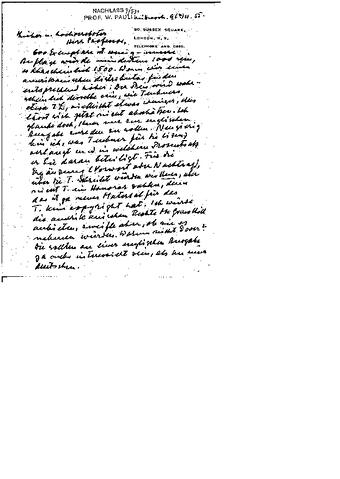 NACHLASS
PROF. W. PAULI
SUSSEX SQUARE,
LONDON, W. 2.
TELEPHONE AMB. 
Herr Professor,
600 Exemplare ist wenig - unsere
Auflage würde mindestens 1000 sein,
wahrscheinlich 1500. Wenn wir einen
amerikanischen distributor finden
entsprechend höher. Der Preis wird wahr-
scheinlich derselbe sein, wie Teubners,
etwas weniger, dies
lässt sich jetzt nicht abschätzen. Ich
glaube doch, Ihnen nur zur englischen
Ausgabe zu sollen. Neugierig
bin ich, was Teubner für die Lizenz
verlangt und in welchem Prozentsatz
er Sie daran beteiligt. Für die
Ergänzung (Vorwort oder Nachtrag),
über die T. schreibt würden wir Ihnen, aber
nicht T. ein Honorar zahlen, denn
das ist ja neues Material für das
T. kein copyright hat. Ich würde
die amerikanischen Rechte
anbieten, zweifle aber, ob sie es
nehmen würden. Warum nicht Dover?
Die sollten an einer englischen Ausgabe
ja mehr interessiert sein, als an einer
deutschen.